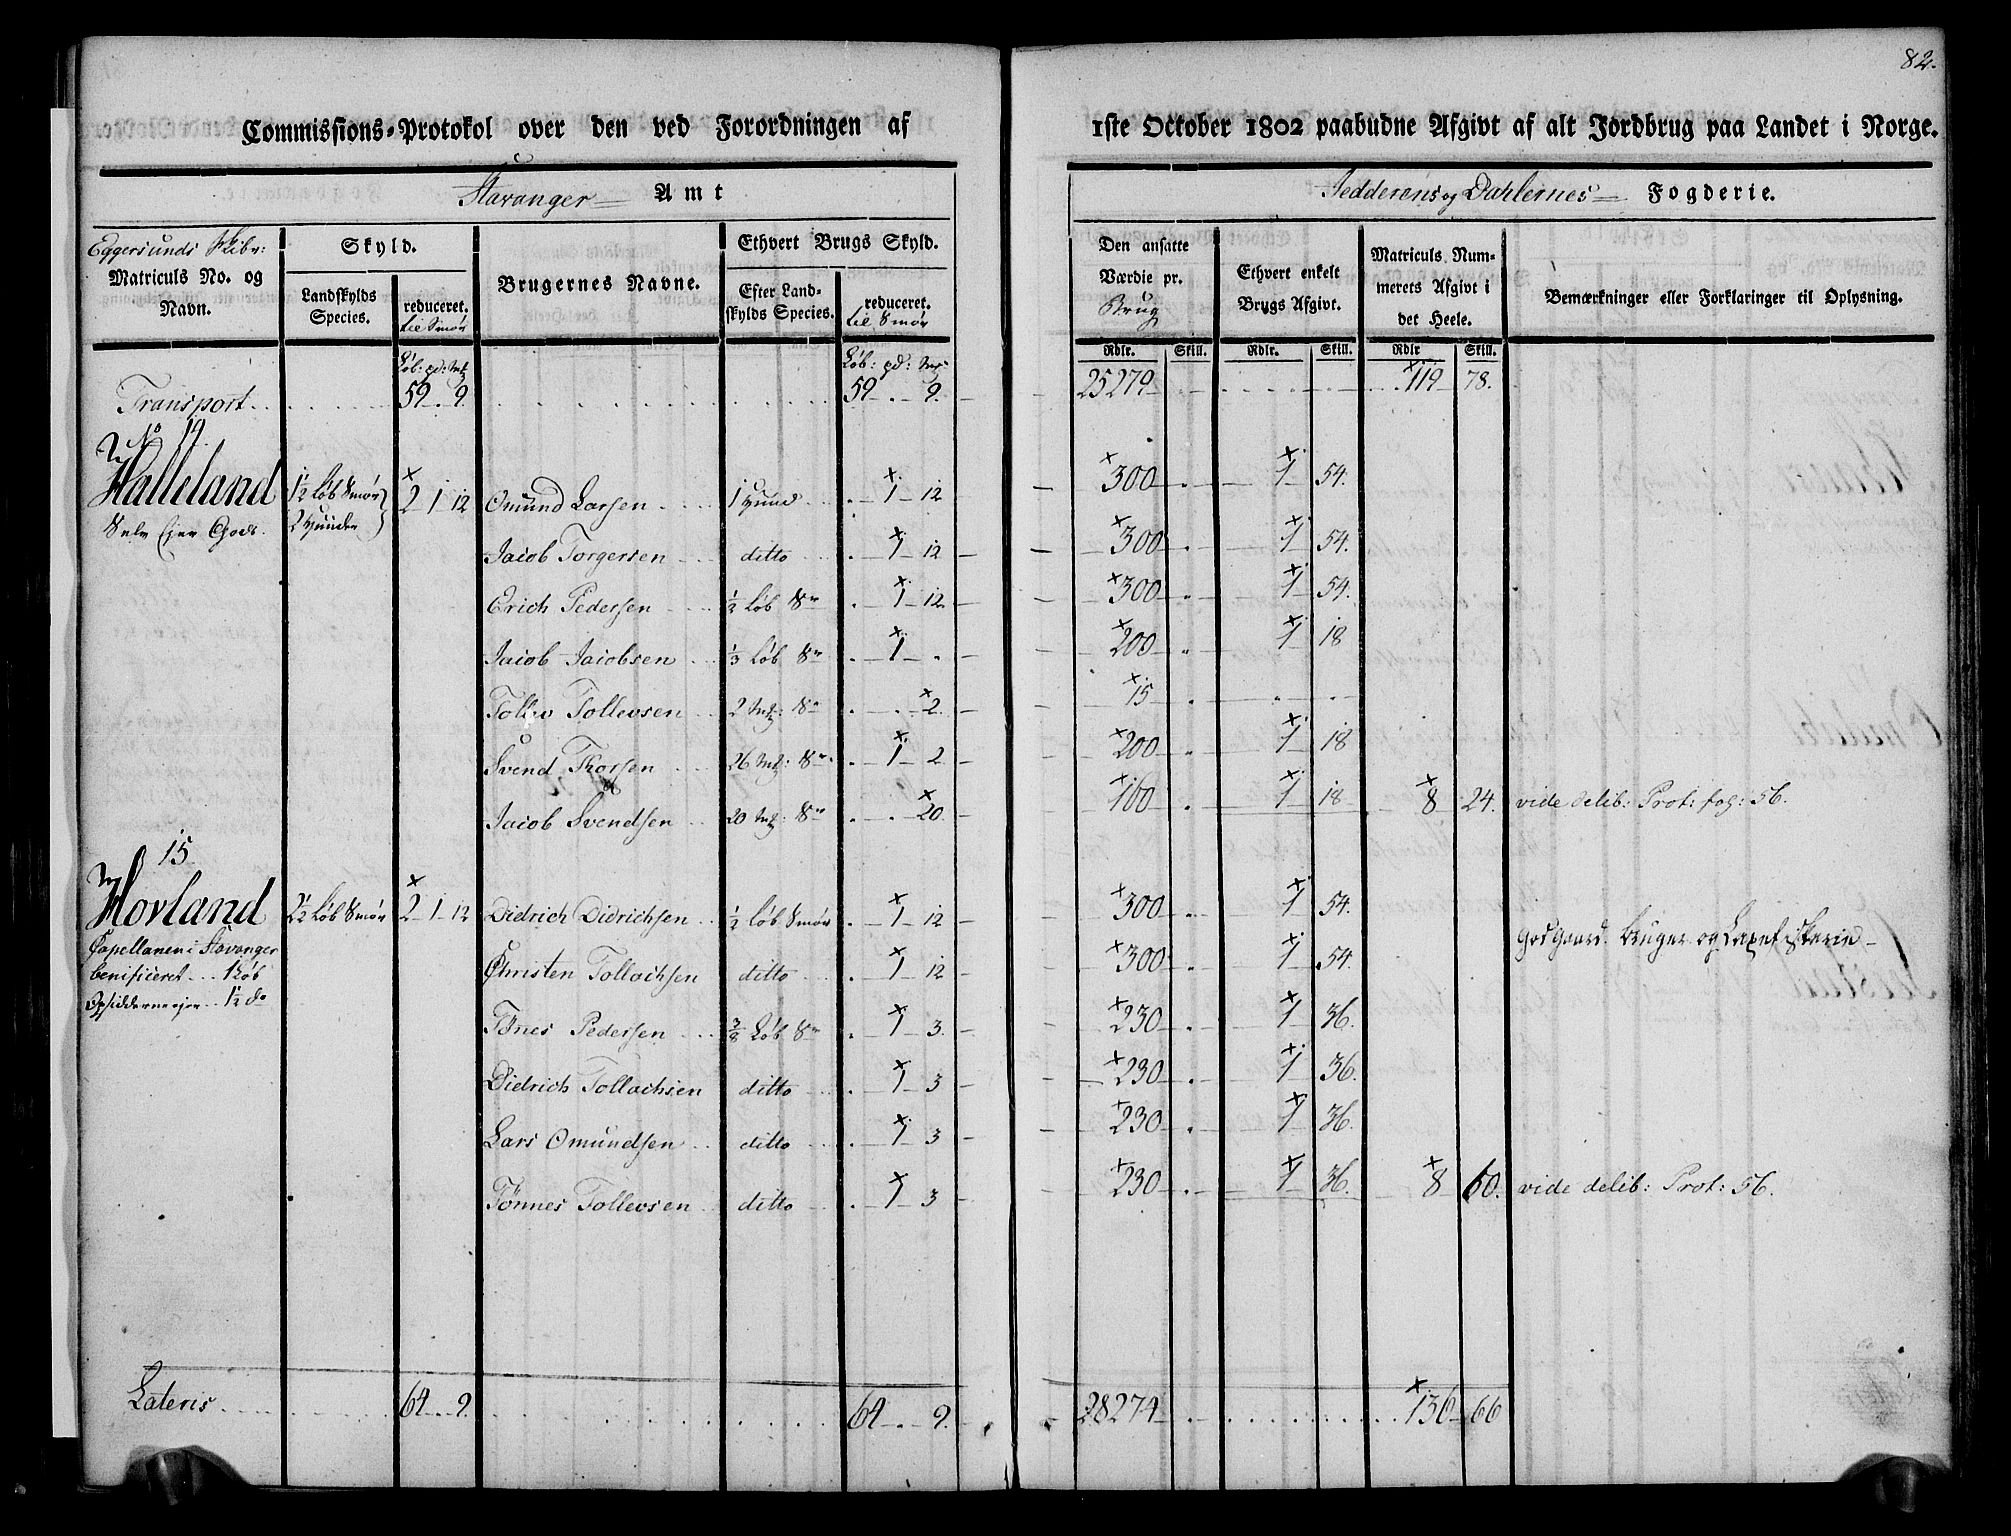 82.
Commissions-Protokol over den ved Forordningen af 1ste October 1802 paabudne Afgivt af alt Jordbrug paa Landet i Norge.
Stavanger Amt
Jedderens og Dahlernes Fogderie.
Eggersunds Skibr:
Matriculs No. og Navn.
Skyld.
Landskylds Species.
reduceret. til Smør
Brugernes Navne.
Ethvert Brugs Skyld.
Efter Landskylds Species.
reduceret. til Smør
Den ansatte Værdie pr. Brug
Ethvert enkelt Brugs Afgivt.
Matriculs Nummerets Afgivt i det Heele.
Bemærkninger eller Forklaringer til Oplysning.
Rdlr. Skill. Rdlr. Skill. Rdlr Skill.
Løb: pd: mk Løb: pd: mk
Transport 59 . 9. 59 . 9. 25279 119 78.
No 14.
Halleland 1½ Løb Smør 2 1 12 Omund Larsen 1 Hund . 1 12 300 . 1 54.
Selv Ejer Gods. 2 Hunder
Jacob Torgersen ditto . 1 12 300 . 1 54.
Erich Pedersen ½ Løb Sr . 1 12 300 . 1 54.
Jacob Jacobsen ⅓ Løb Sr . 1 . 200 . 1 18
Tollev Tollevsen 2 mk: Sr . . 2. 15 . . .
Svend Thorsen 26 mk: Sr . 1 2 200 . 1 18
Jacob Svendsen 20 mk: Sr . . 20. 160 . 1 18 8 24. vide delib: Prot: fog: 56.
15.
Hovland 2½ Løb Smør 2 1 12 Didrich Didrichsen ½ Løb Smør . 1 12 300 . 1 54.
Capellanen i Stavanger
God Gaard. Bruger og Laxefiskerie
benificeret 1 Løb Christen Tollachsen ditto . 1 12 300 . 1 54.
Opsidderne ejer 1½ do
Tønes Pedersen ⅜ Løb Sr . 1 3. 230 . 1 36.
Didrich Tollachsen ditto . 1 3 230 . 1 36.
Lars Omundsen ditto . 1 3 230 . 1 36.
Tønnes Tollevsen ditto . 1 3 230 . 1 36. 8 60. vide delib: Prot: 56.
Lateris 64 . 9. 64 . 9. 28274 136 66